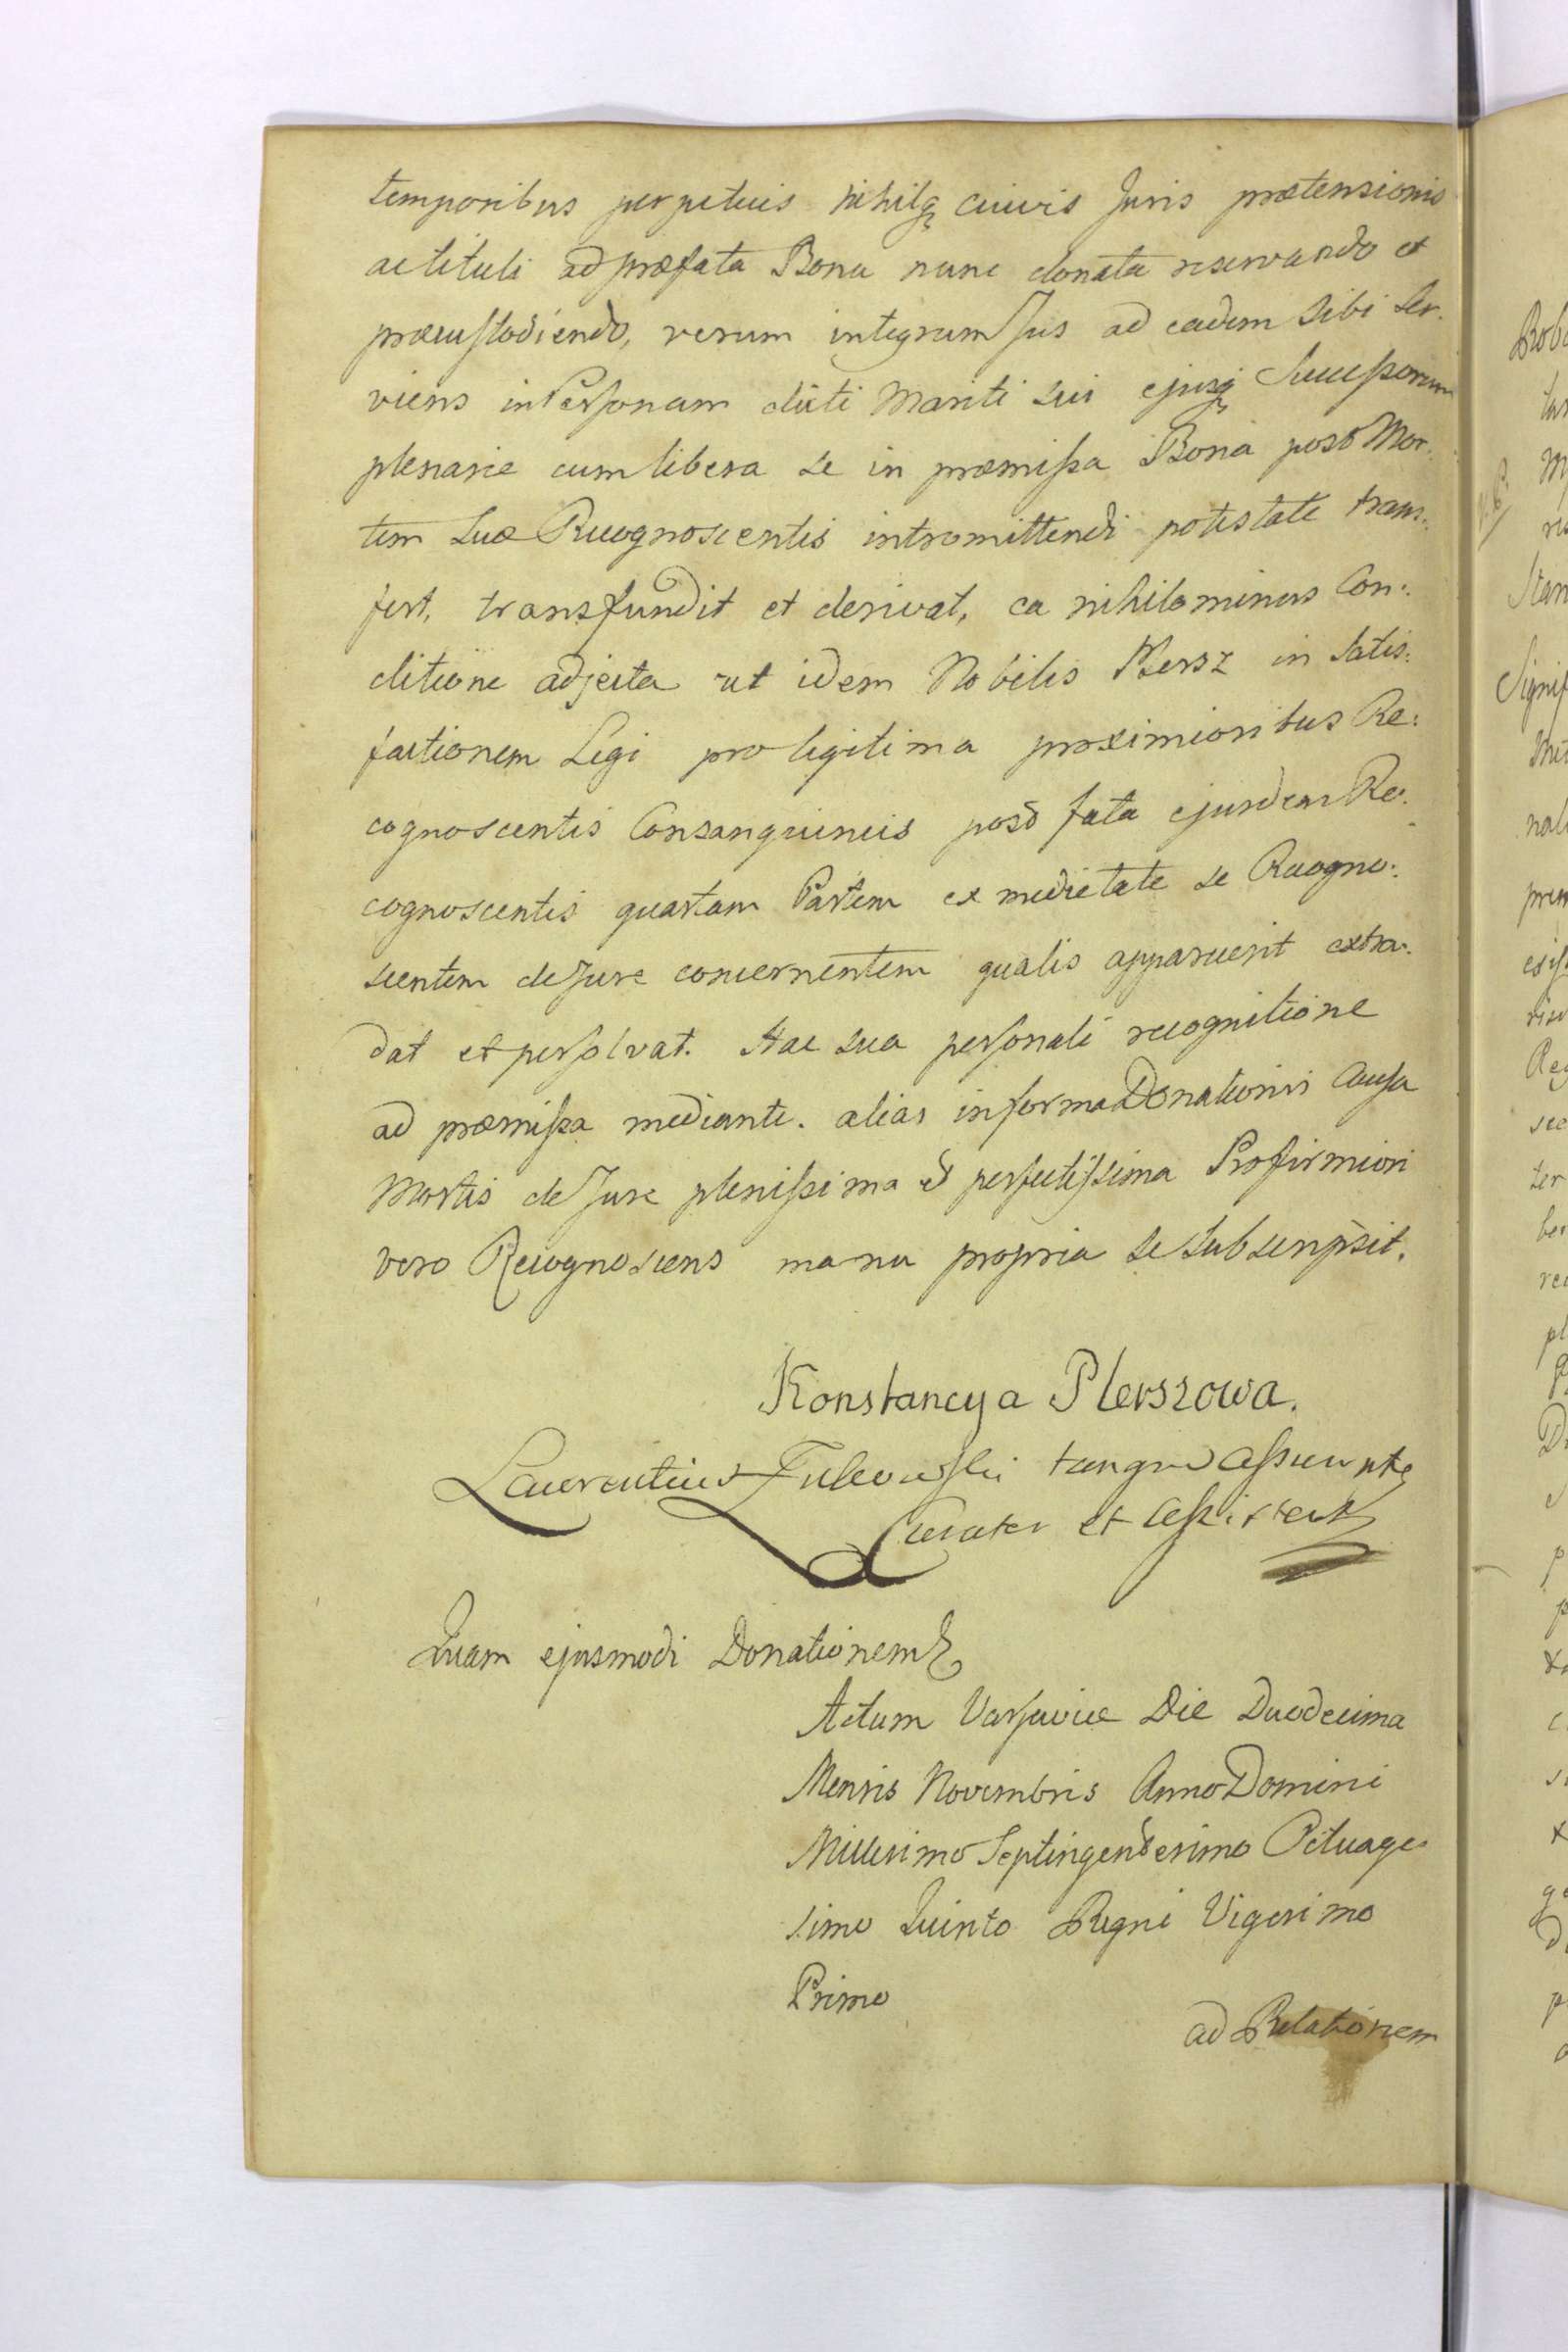 temporibus perpetuis nihilq cuivis Juris prætensionis
ac tituli ad præfata Bona nunc donata reservando et
præcustodiendo, verum integrum Jus ad eadem sibi ser-
viens in Personam dicti Mariti sui ejusq Successorum
plenarie cum libera se in præmissa Bona post Mor-
tem suæ Recognoscentis intromittendi potestate trans-
fert, transfundit et derivat, ea nihilominus Con:
ditione adjecta ut idem Nobilis Plersz in Satis:
factionem Legi pro legitima proximioribus Re:
cognoscentis Consanguineis post fata ejusdem Re:
cognoscentis quartam Partem ex medietate se Recogno:
scentem de Jure concernentem qualis apparuerit extra:
dat et persolvat. Hac sua personali recognitione
ad præmissa mediante. alias in forma Donationis Causa
Mortis de Jure plenissima et perfectissima Pro firmiori
vero Recognoscens manu propria se subscripsit.
Konstancya Plerszowa.
Laurentius tanqu assumpt
Curator et assistens
Quam ejusmodi Donationem
Actum Varsaviæ Die Duodecima
Mensis Novembris Anno Domini
Millesimo Septingentesimo Octuage
simo Quinto Regni Vigesimo
Primo
ad Relationem